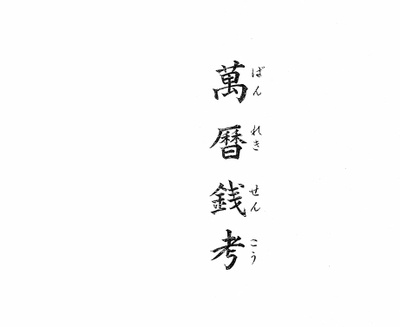 萬暦銭考
ばんれきせんこう